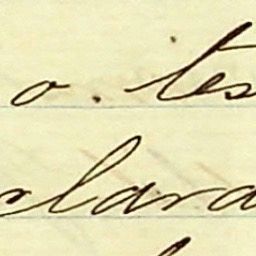 o. tes
clara